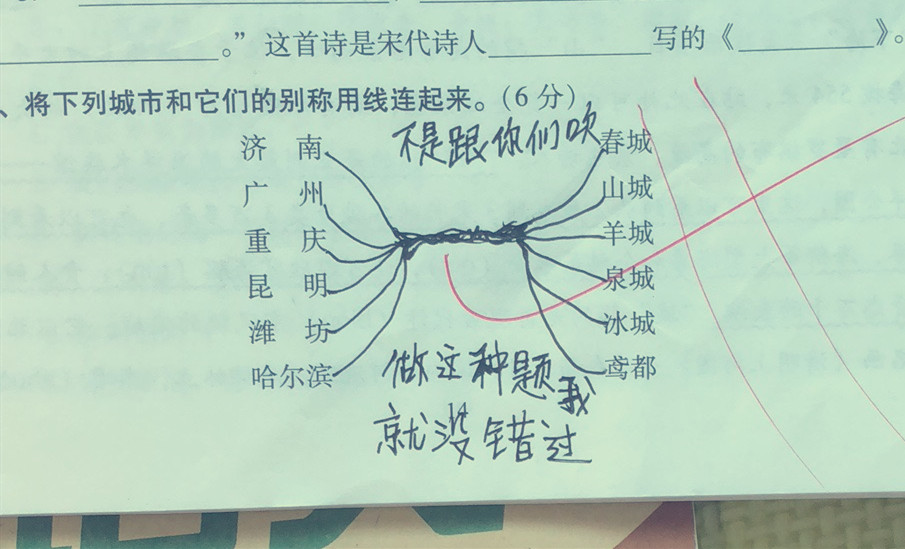 。”这首诗是宋代诗人________写的《________》。
、将下列城市和它们的别称用线连起来。(6分)
不是跟你们吹
济 南 春城
广 州 山城
重 庆 羊城
昆 明 泉城
潍 坊 冰城
哈尔滨 鸢都
做这种题我
14
就没错过